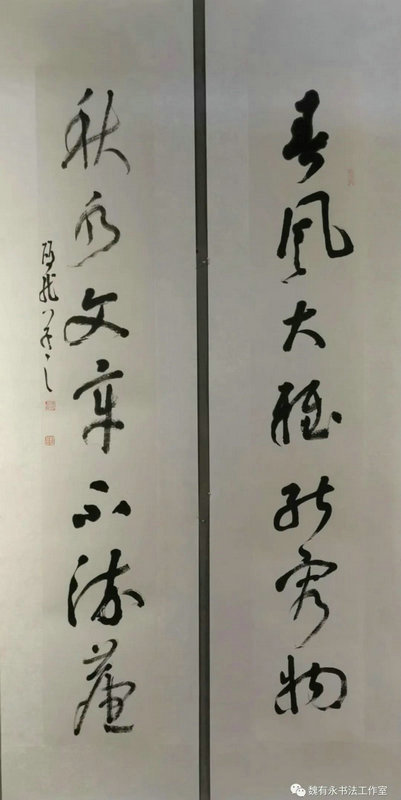 春風大雅能容物
秋水文章不染塵
魏有永书法工作室